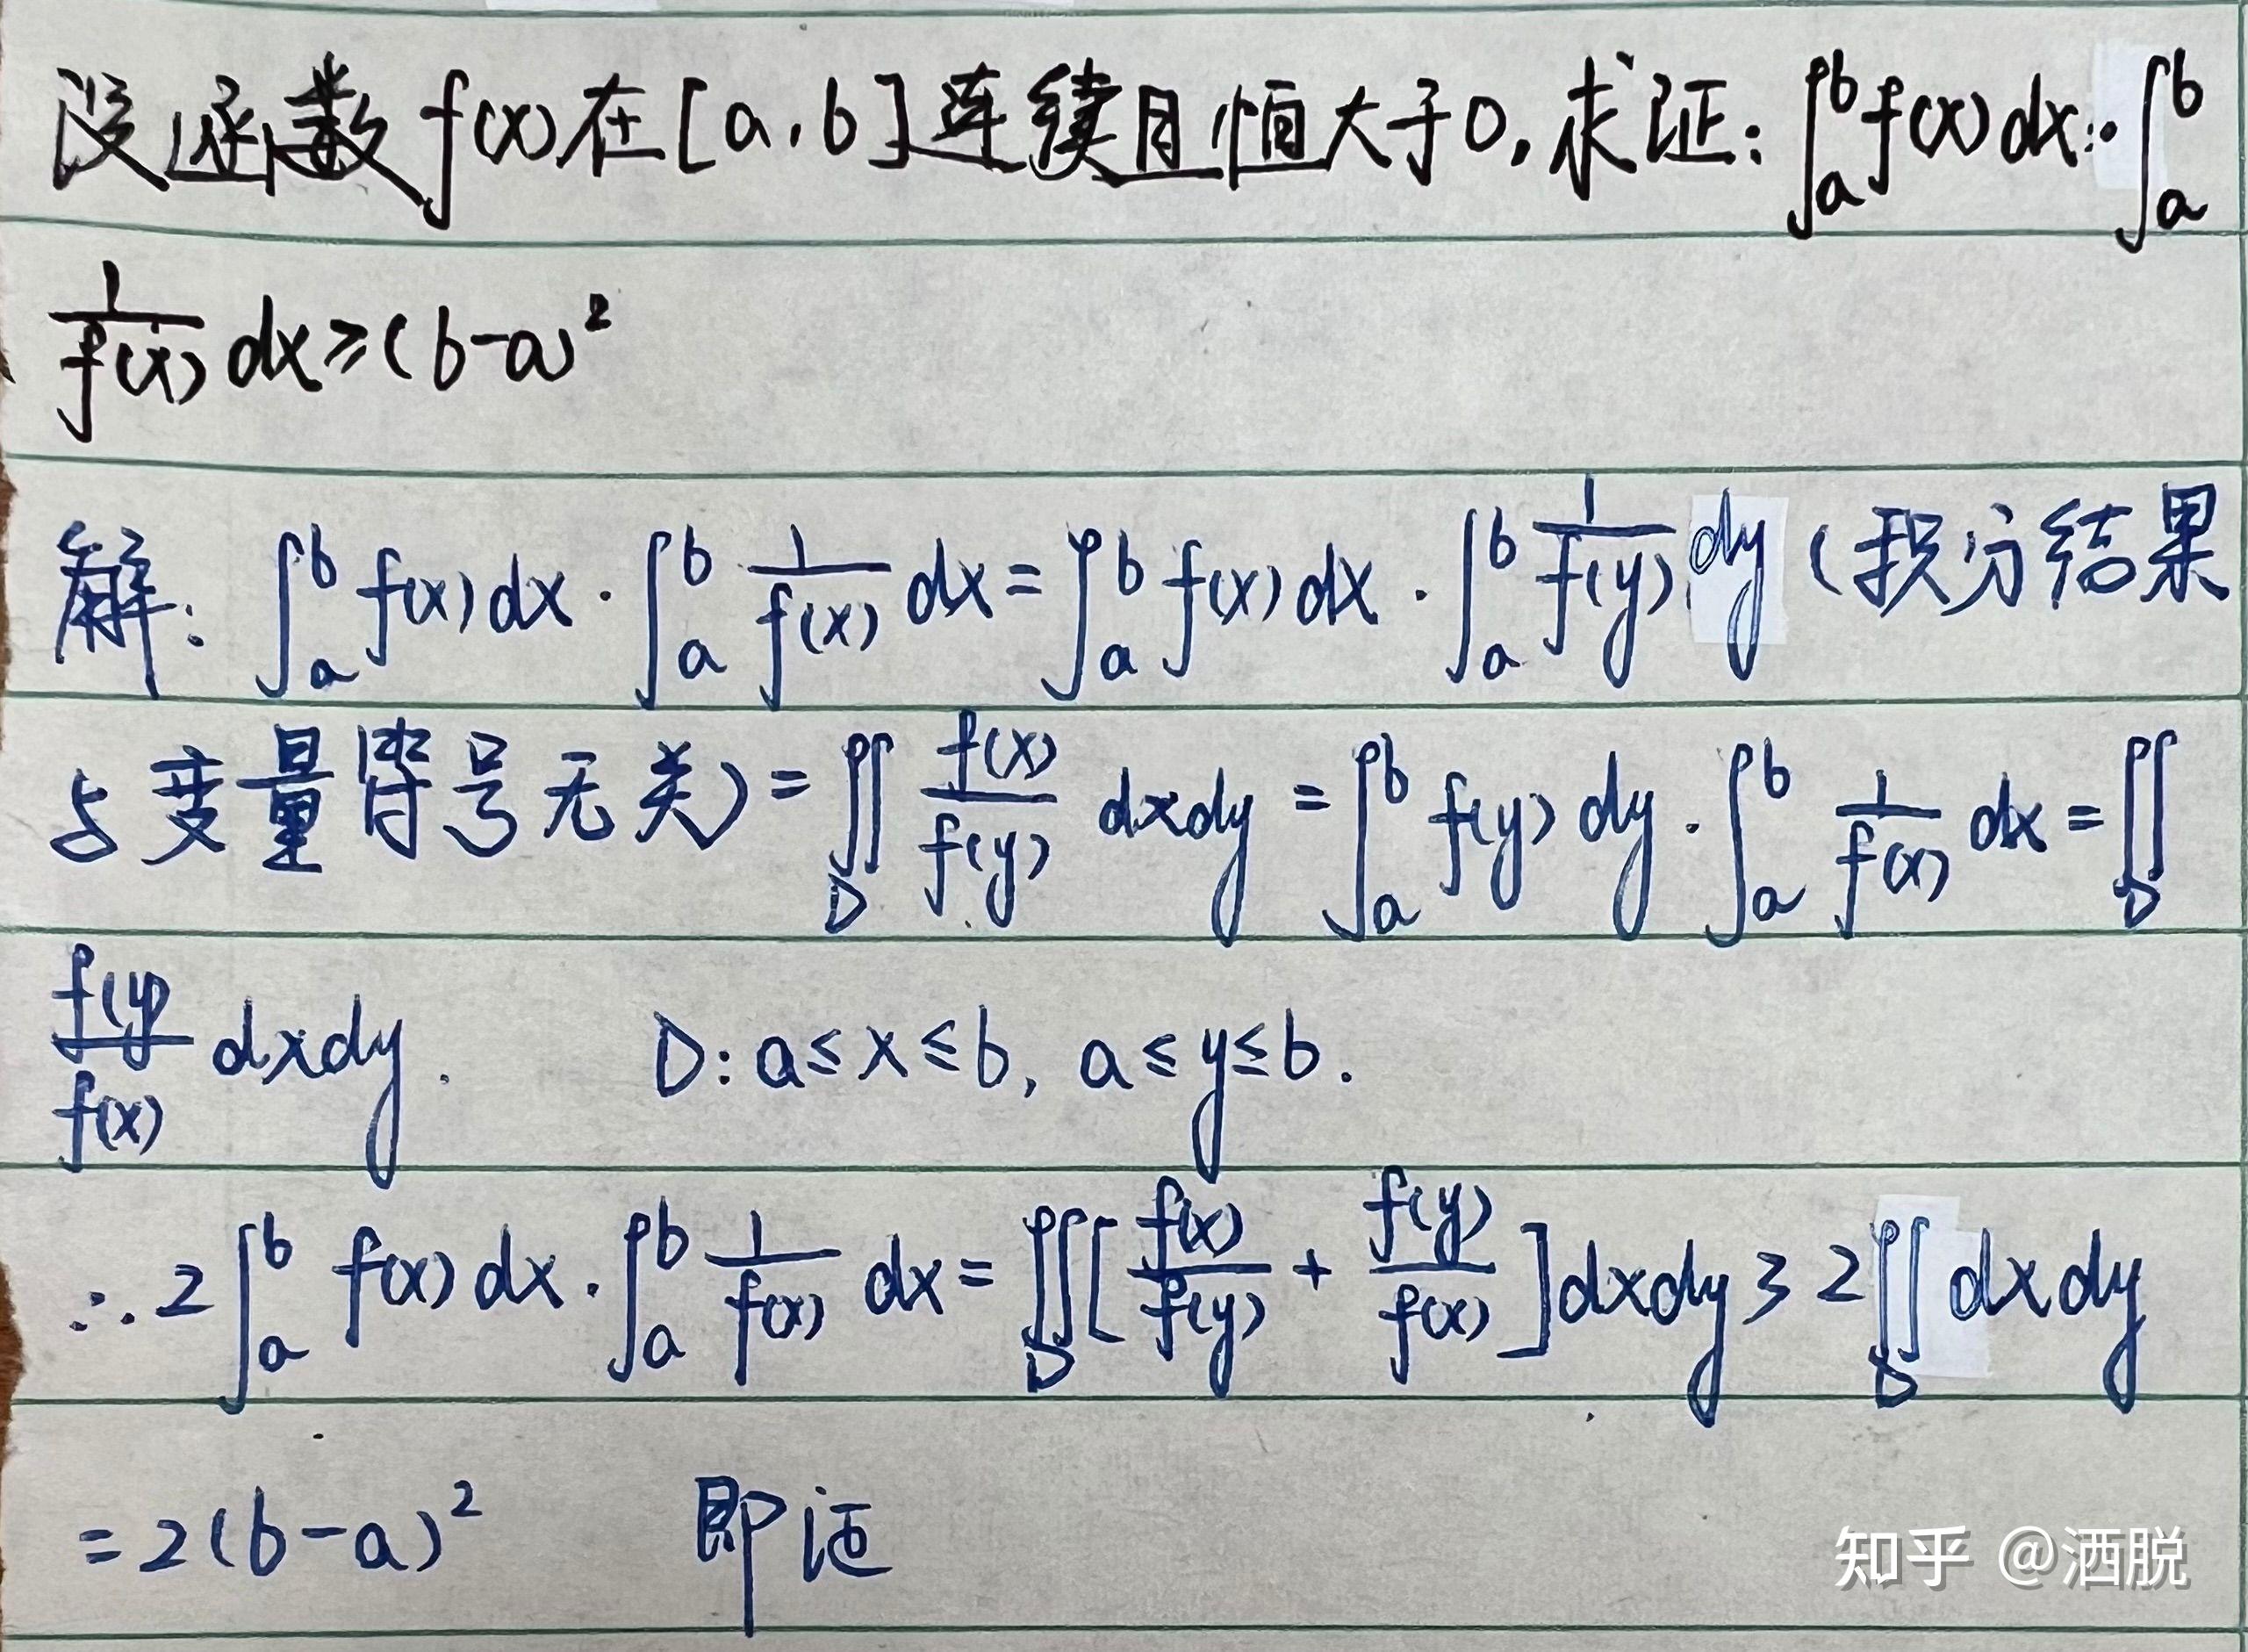 设函数f(x)在[a,b]连续且恒大于0,求证:∫_a^b f(x)dx·∫_a^b
1/f(x) dx≥(b-a)²
解:∫_a^b f(x)dx·∫_a^b 1/f(x) dx=∫_a^b f(x)dx·∫_a^b 1/f(y) dy(积分结果
与变量符号无关)=∬_D f(x)/f(y) dxdy=∫_a^b f(y)dy·∫_a^b 1/f(x) dx=∬_D
f(y)/f(x) dxdy. D:a≤x≤b, a≤y≤b.
∴2∫_a^b f(x)dx·∫_a^b 1/f(x) dx=∬_D[f(x)/f(y)+f(y)/f(x)]dxdy≥2∬_D dxdy
=2(b-a)² 即证
知乎 @洒脱